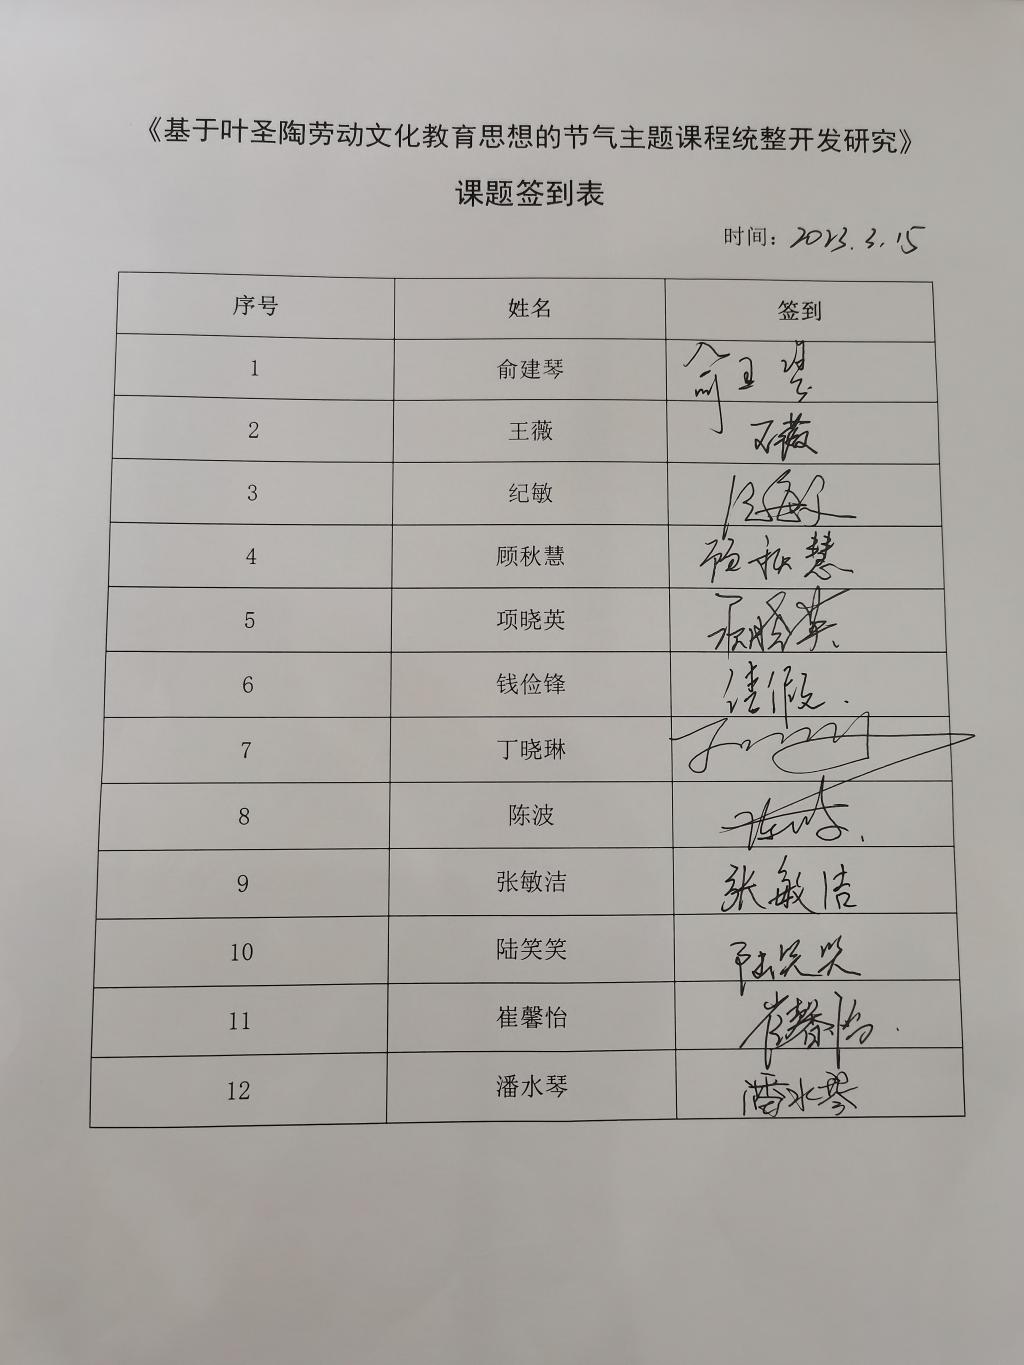 《基于叶圣陶劳动文化教育思想的节气主题课程统整开发研究》
课题签到表
时间：2023.3.15
序号 姓名 签到
1 俞建琴
2 王薇 王薇
3 纪敏
4 顾秋慧 顾秋慧
5 项晓英 项晓英
6 钱俭锋 佳假.
7 丁晓琳
8 陈波
9 张敏洁 张敏洁
10 陆笑笑 陆笑笑
11 崔馨怡 崔馨怡
12 潘水琴 潘水琴